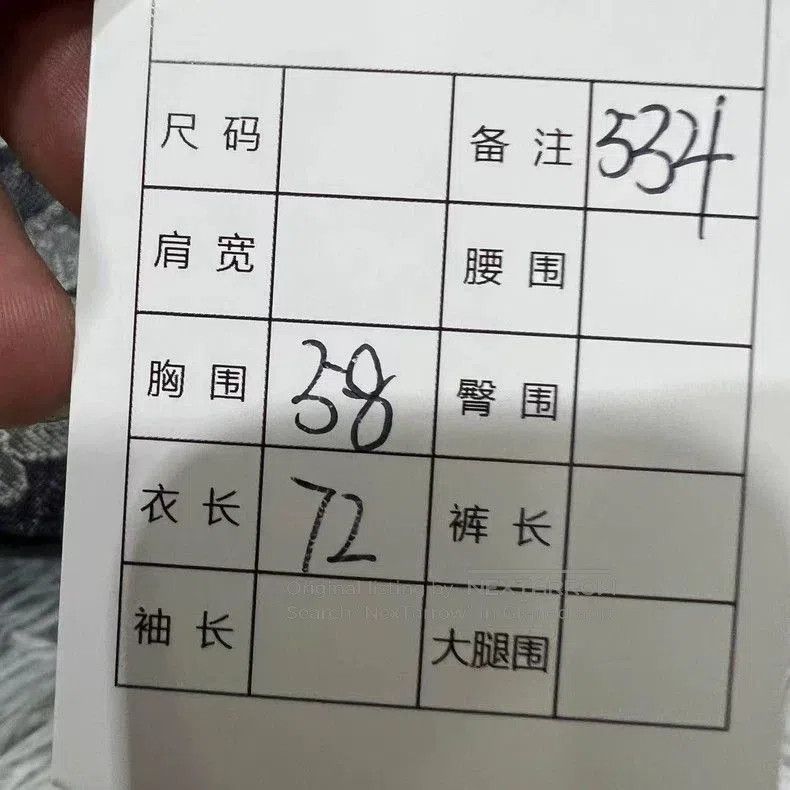 尺码 备注 534
肩宽 腰围
胸围 58 臀围
衣长 72 裤长
Original listing by
袖长 大腿围